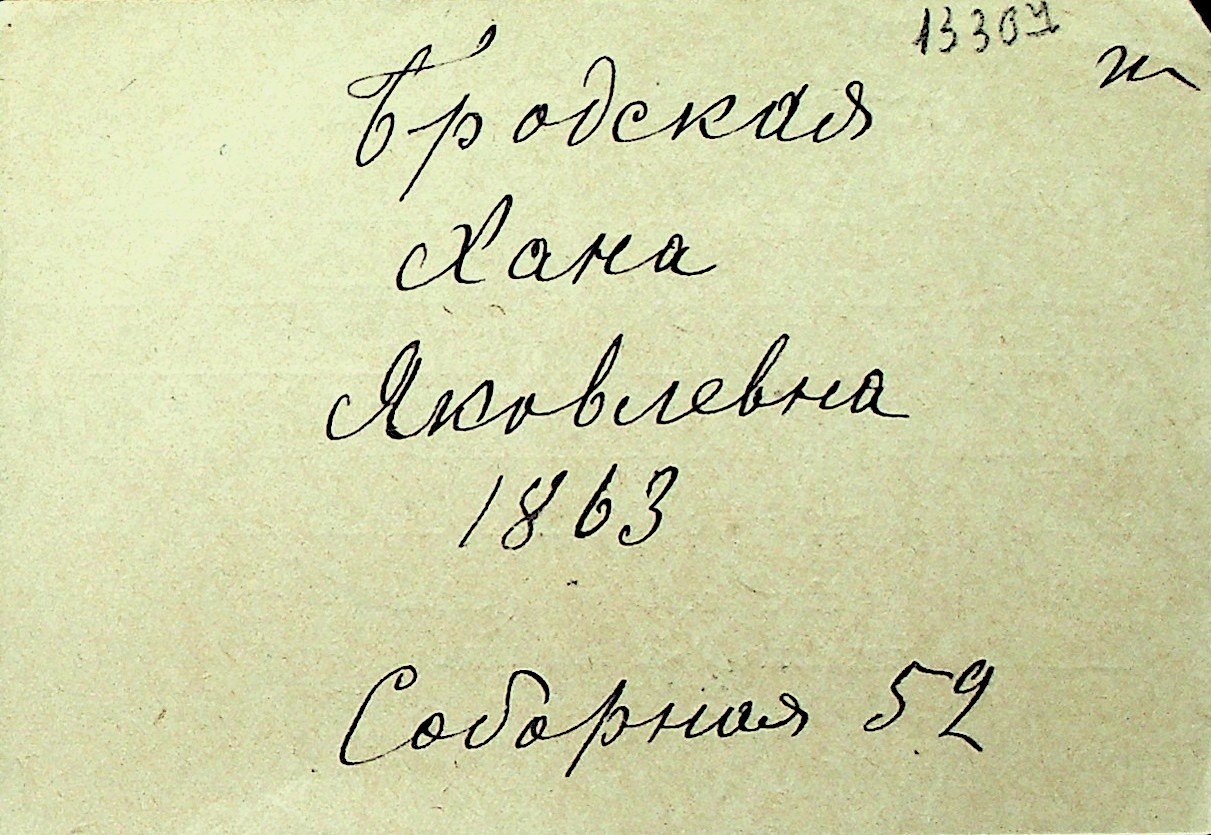 13307
ж
Бродская
Хана
Яковлевна
1863
Соборная 52